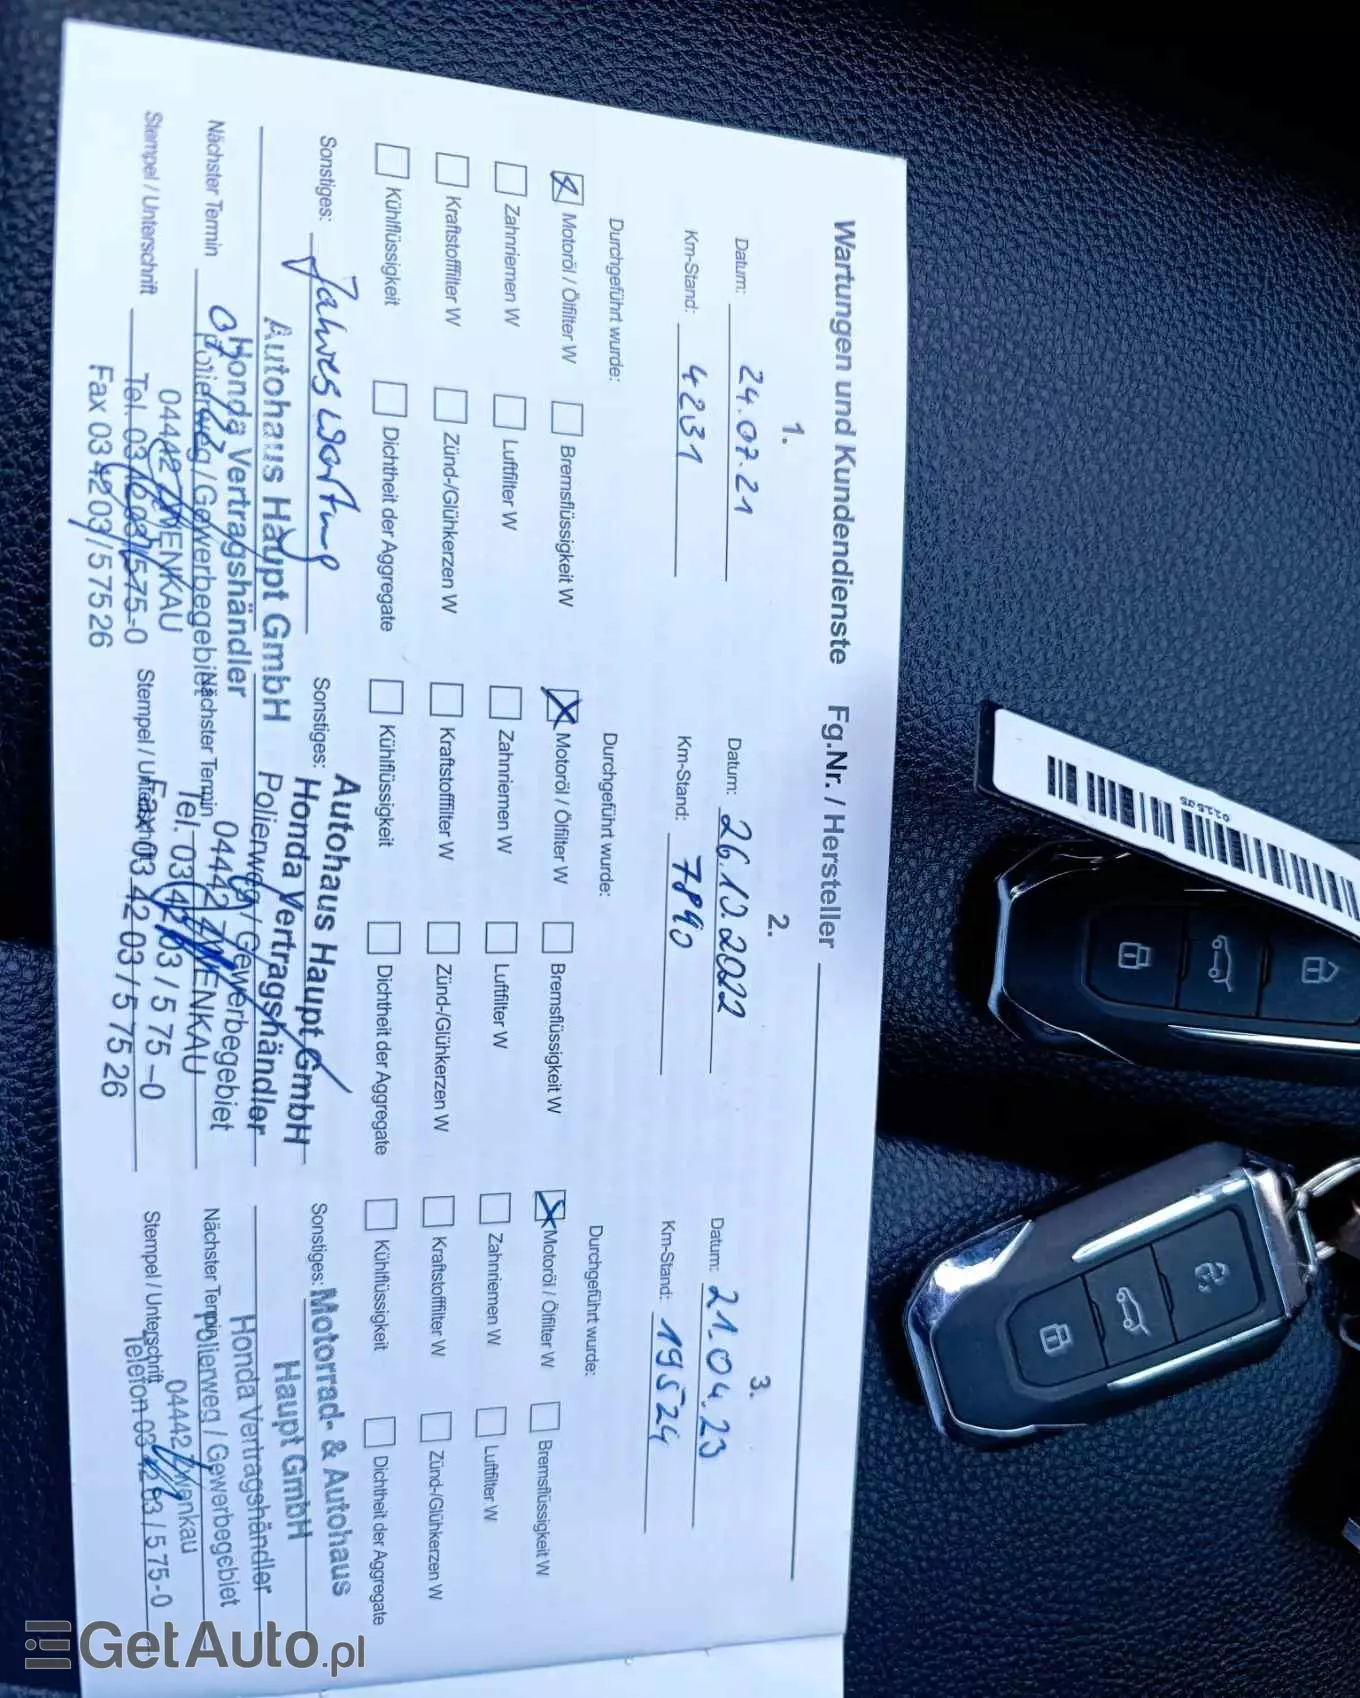 Wartungen und Kundendienste Fg.Nr. / Hersteller
1.
Datum: 24.07.21
Km-Stand: 4231
Durchgeführt wurde:
Motoröl / Ölfilter W
Bremsflüssigkeit W
Zahnriemen W
Luftfilter W
Kraftstofffilter W
Zünd-/Glühkerzen W
Kühlflüssigkeit
Dichtheit der Aggregate
Sonstiges: Jahreswartung
Autohaus Haupt GmbH
Honda Vertragshändler
Nächster Termin
Polierweg / Gewerbegebiet
04442 ZWENKAU
Stempel / Unterschrift
Tel. 03 42 03 / 5 75 -0
Fax 03 42 03 / 5 75 26
2.
Datum: 26.10.2022
Km-Stand: 7890
Durchgeführt wurde:
Motoröl / Ölfilter W
Bremsflüssigkeit W
Zahnriemen W
Luftfilter W
Kraftstofffilter W
Zünd-/Glühkerzen W
Kühlflüssigkeit
Dichtheit der Aggregate
Autohaus Haupt GmbH
Sonstiges:
Honda Vertragshändler
Polierweg / Gewerbegebiet
Nächster Termin
04442 ZWENKAU
Tel. 03 42 03 / 5 75 -0
Stempel / Unterschrift
Fax 03 42 03 / 5 75 26
3.
Datum: 21.04.23
Km-Stand: 19524
Durchgeführt wurde:
Motoröl / Ölfilter W
Bremsflüssigkeit W
Zahnriemen W
Luftfilter W
Kraftstofffilter W
Zünd-/Glühkerzen W
Kühlflüssigkeit
Dichtheit der Aggregate
Sonstiges:
Motorrad- & Autohaus
Haupt GmbH
Honda Vertragshändler
Nächster Termin
Polierweg / Gewerbegebiet
04442 Zwenkau
Stempel / Unterschrift
Telefon 03 42 03 / 5 75-0
GetAuto.pl